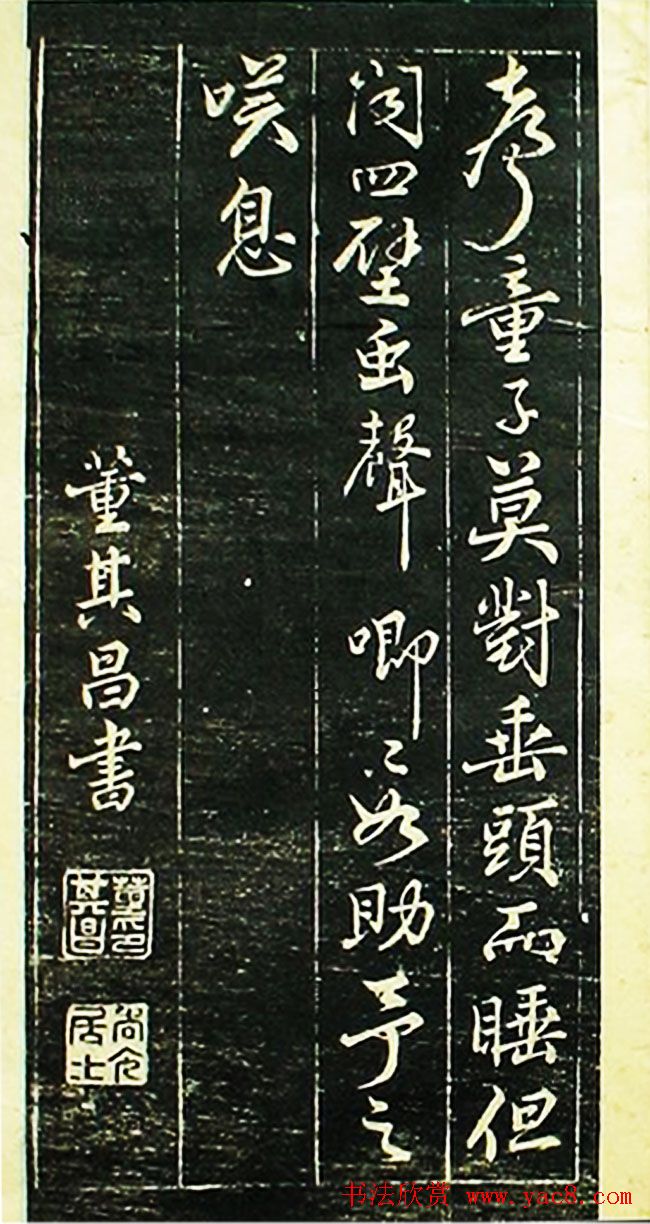 聲童子莫對垂頭而睡但
聞四壁虫聲唧〻如助予之
嘆息
董其昌書
其昌
居士
书法欣赏 www.yac8.com